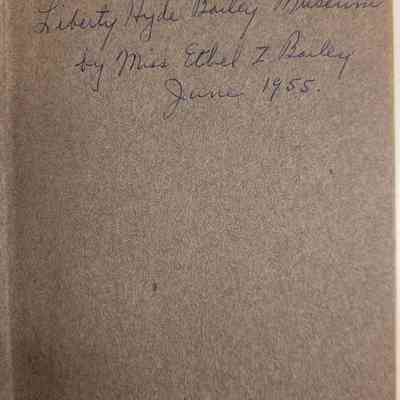 Liberty Hyde Bailey Museum
by Miss Ethel Z Bailey
June 1955.